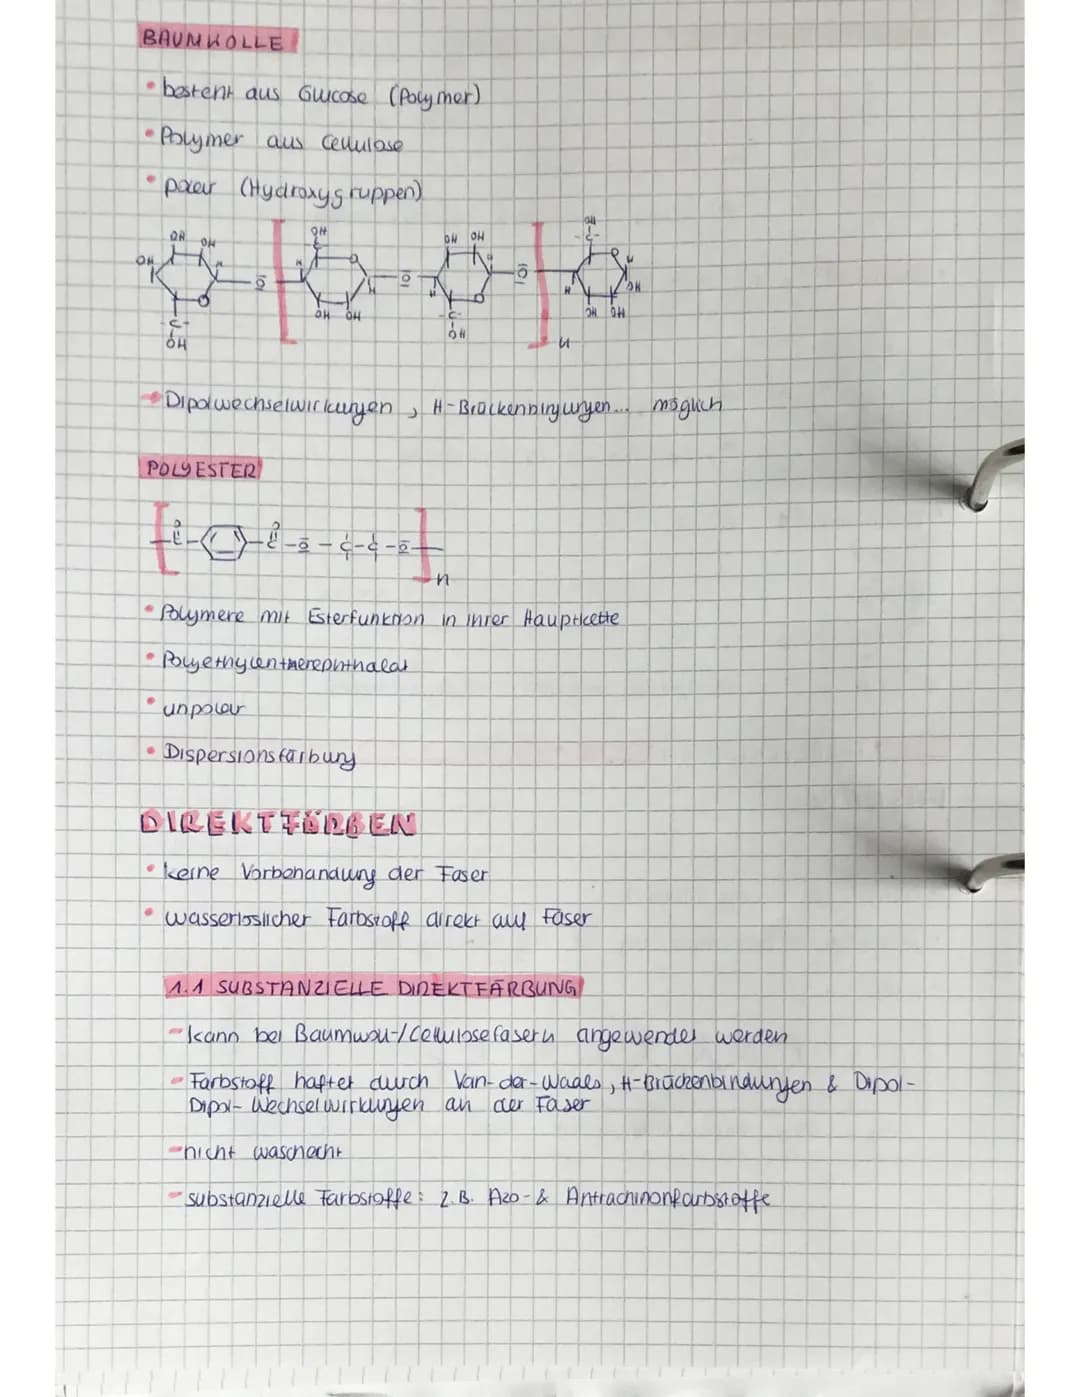 BAUMWOLLE
• besteht aus Glucose (Polymer)
• Polymer aus Cellulose
• polar (Hydroxygruppen)
OH
OH OH OH OH OH
OH H C H O H
H O O O H OH
OH OH OH OH
C C
OH OH n
• Dipolwechselwirkungen, H-Brückenbindungen... möglich
POLYESTER
O O
C C - O - C - C - O
n
• Polymere mit Esterfunktion in ihrer Hauptkette
• Polyethylentherephthalat
• unpolar
• Dispersionsfärbung
DIREKTFÄRBEN
• keine Vorbehandlung der Faser
• wasserlösslicher Farbstoff direkt auf Faser
1.1 SUBSTANZIELLE DIREKTFÄRBUNG
- kann bei Baumwoll-/Cellulosefasern angewendet werden
- Farbstoff haftet durch Van-der-Waals, H-Brückenbindungen & Dipol-
Dipol-Wechselwirkungen an der Faser
- nicht waschecht
- substanzielle Farbstoffe: z.B. Azo- & Antrachinonfarbstoffe